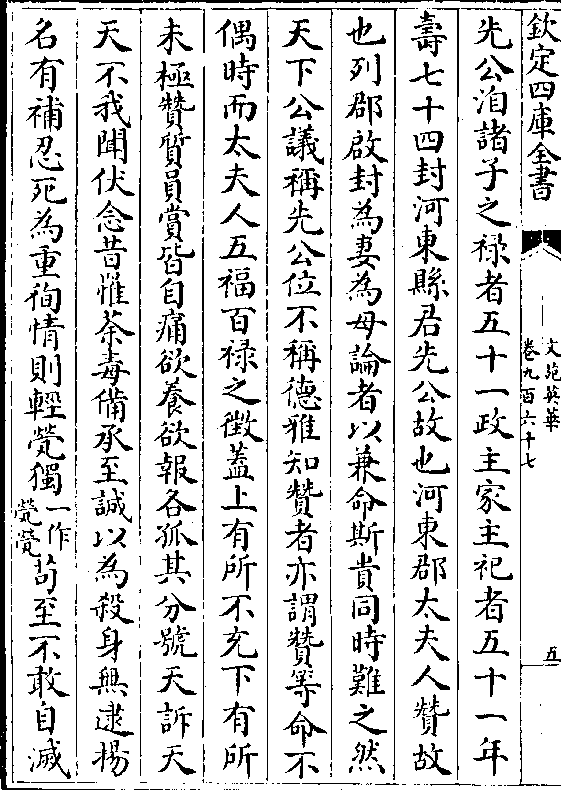 欽定四庫全書
文苑英華
卷九百六十七
五
先公洎諸子之禄者五十一政主家主祀者五十一年
壽七十四封河東縣君先公故也河東郡太夫人贊故
也列郡啟封為妻為母論者以兼命斯貴同時難之然
天下公議稱先公位不稱德雅知贊者亦謂贊等命不
偶時而太夫人五福百禄之徵蓋上有所不充下有所
未極贊質員賞皆自痛欲養欲報各孤其分號天訴天
天不我聞伏念昔罹荼毒備承至誠以為殺身無逮揚
名有補忍死為重徇情則輕煢獨一作煢煢苟至不敢自滅